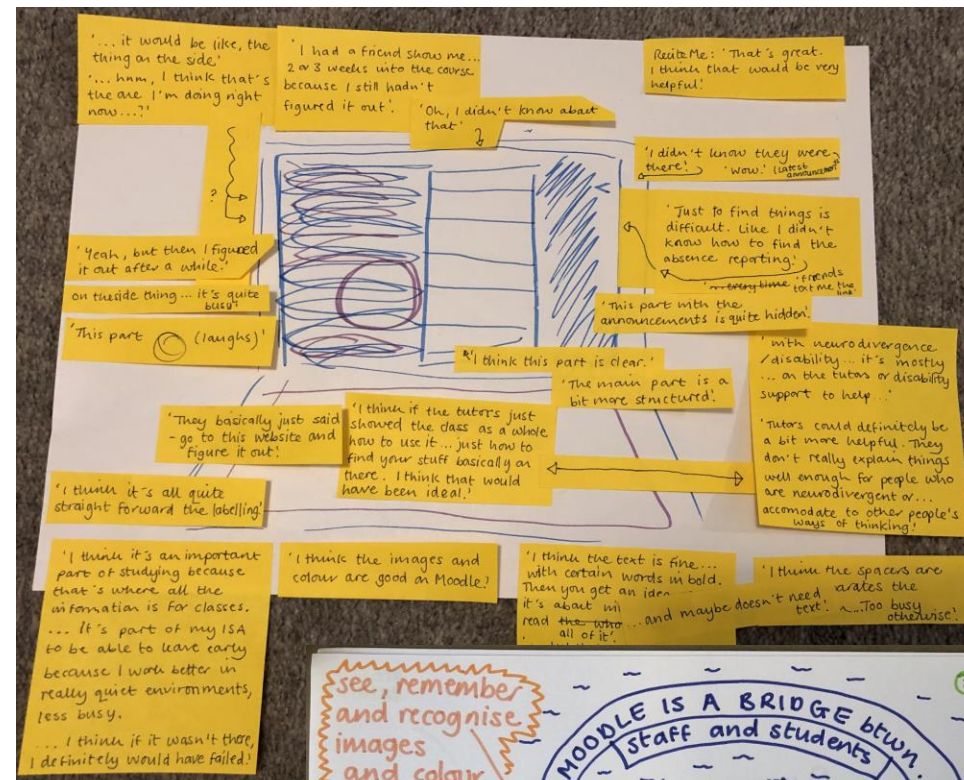 '... it would be like, the
thing on the side.'
'... hnm, I think that's
the one I'm doing right
now...?'
'I had a friend show me...
2 or 3 weeks into the course
because I still hadn't
figured it out'.
'Oh, I didn't know about
that'
ReciteMe: 'That's great.
I think that would be very
helpful.'
'I didn't know they were
there.'
'Wow.' (latest
announcements
?
'Just to find things is
difficult. Like I didn't
know how to find the
absence reporting.'
every time 'friends
text me the
link.'
'Yeah, but then I figured
it out after a while.'
on the side thing... it's quite
busy'
'This part (laughs)'
'This part with the
announcements is quite hidden'.
'I think this part is clear.'
'The main part is a
bit more structured'.
'with neurodivergence
/disability... it's mostly
... on the tutors or disability
support to help...'
'Tutors could definitely be
a bit more helpful. They
don't really explain things
well enough for people who
are neurodivergent or...
accomodate to other people's
ways of thinking.'
'They basically just said
- go to this website and
figure it out.'
'I think if the tutors just
showed the class as a whole
how to use it... just how to
find your stuff basically on
there. I think that would
have been ideal.'
'I think it's all quite
straight forward the labelling.'
'I think it's an important
part of studying because
that's where all the
information is for classes.
... It's part of my ISA
to be able to leave early
because I work better in
really quiet environments,
less busy.
... I think if it wasn't there,
I definitely would have failed.'
'I think the images and
colour are good on Moodle.'
'I think the text is fine...
with certain words in bold.
Then you get an idea
it's about
read the who
all of it'.
... and maybe doesn't need
'I think the spacers are
arates the
text'. ~...Too busy
otherwise.'
see, remember
and recognise
images
and colour
MOODLE IS A BRIDGE btwn
staff and students